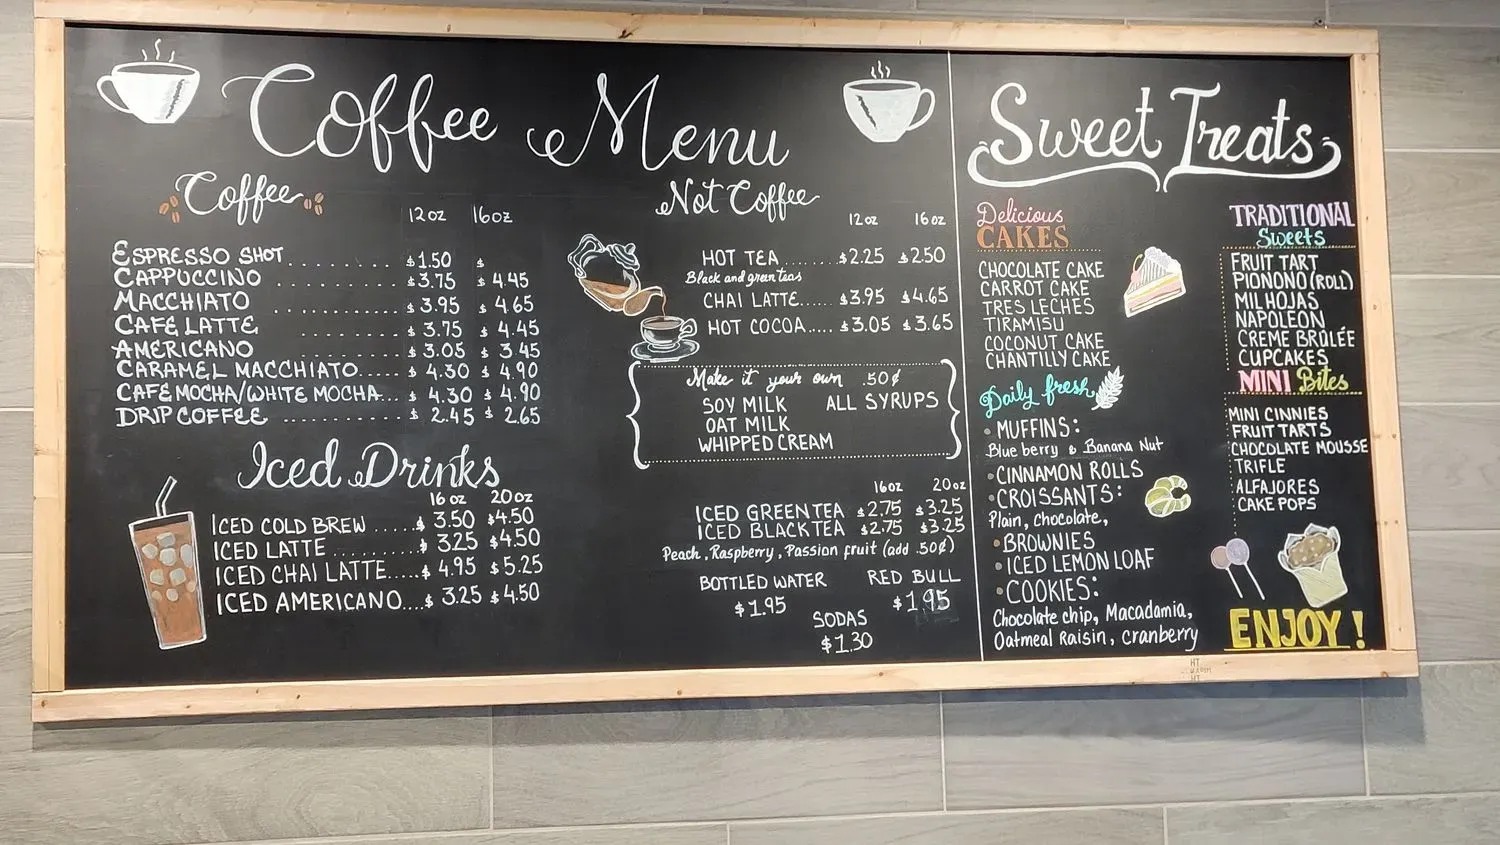 Coffee Menu
Coffee
12 oz 16 oz
ESPRESSO SHOT ........ $1.50 $
CAPPUCCINO ......... $3.75 $ 4.45
MACCHIATO ......... $3.95 $ 4.65
CAFE LATTE $3.75 $ 4.45
AMERICANO ........ $3.05 $ 3.45
CARAMEL MACCHIATO..... $ 4.30 $ 4.90
CAFE MOCHA/WHITE MOCHA... $ 4.30 $ 4.90
DRIP COFFEE ......... $ 2.45 $ 2.65
Iced Drinks
16 oz 20 oz
ICED COLD BREW .....$ 3.50 $4.50
ICED LATTE ......... $ 3.25 $4.50
ICED CHAI LATTE.....$ 4.95 $5.25
ICED AMERICANO....$ 3.25 $4.50
Not Coffee
12 oz 16 oz
HOT TEA .......$2.25 $2.50
Black and green teas
CHAI LATTE...... $3.95 $4.65
HOT COCOA..... $3.05 $3.65
Make it your own .50¢
SOY MILK ALL SYRUPS
OAT MILK
WHIPPED CREAM
16oz 20 oz
ICED GREEN TEA $2.75 $3.25
ICED BLACK TEA $2.75 $3.25
Peach, Raspberry, Passion fruit (add .50¢)
BOTTLED WATER RED BULL
$1.95 $1.95
SODAS
$1.30
Sweet Treats
Delicious
CAKES
CHOCOLATE CAKE
CARROT CAKE
TRES LECHES
TIRAMISU
COCONUT CAKE
CHANTILLY CAKE
Daily fresh
• MUFFINS:
Blue berry & Banana Nut
• CINNAMON ROLLS
• CROISSANTS:
Plain, chocolate,
• BROWNIES
• ICED LEMON LOAF
• COOKIES:
Chocolate chip, Macadamia,
Oatmeal Raisin, cranberry
TRADITIONAL
Sweets
FRUIT TART
PIONONO (ROLL)
MIL HOJAS
NAPOLEON
CREME BRÛLÉE
CUPCAKES
MINI Bites
MINI CINNIES
FRUIT TARTS
CHOCOLATE MOUSSE
TRIFLE
ALFAJORES
CAKE POPS
ENJOY!